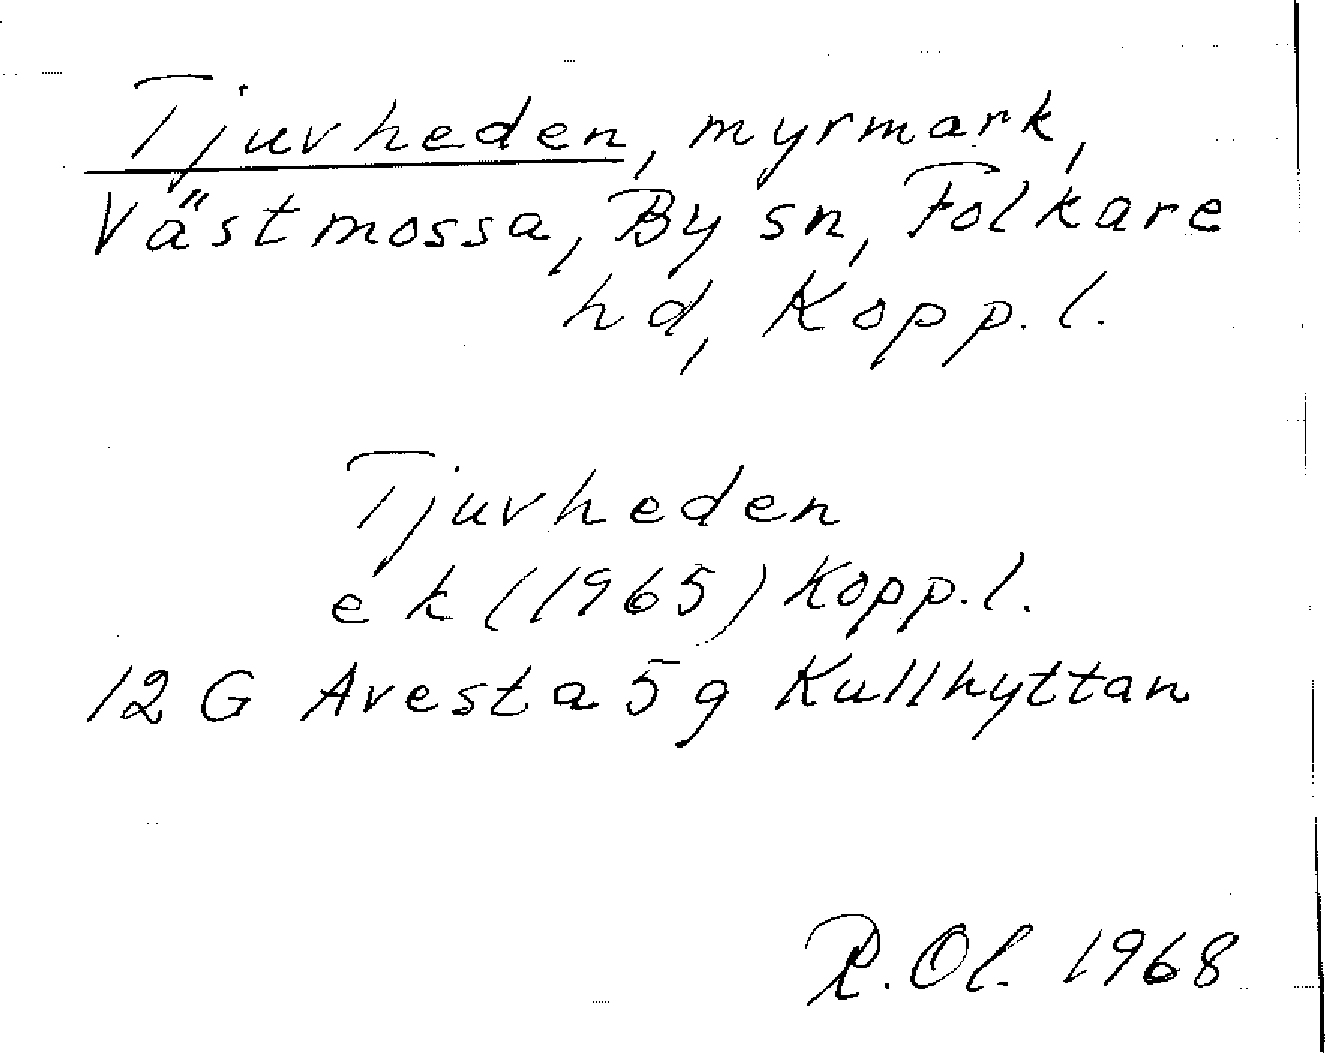 Tjuvheden, myrmark,
Västmossa, By sn, Folkare
hd, Kopp. l.
Tjuvheden
ek (1965) Kopp. l.
12 G Avesta 5 g Kullhyttan
R. Ol. 1968